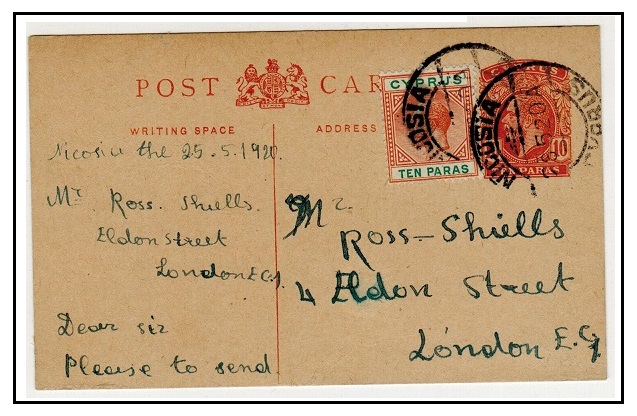 POST CARD
WRITING SPACE
ADDRESS
CYPRUS
TEN PARAS
CYPRUS
10
PARAS
NICOSIA
NICOSIA
CYPRUS
Nicosia the 25-5-1920
Mr Ross. Shiells.
Eldon Street
London E C1.
Dear sir
Please to send
Mr.
Ross-Shiells
4 Eldon Street
London E.C1